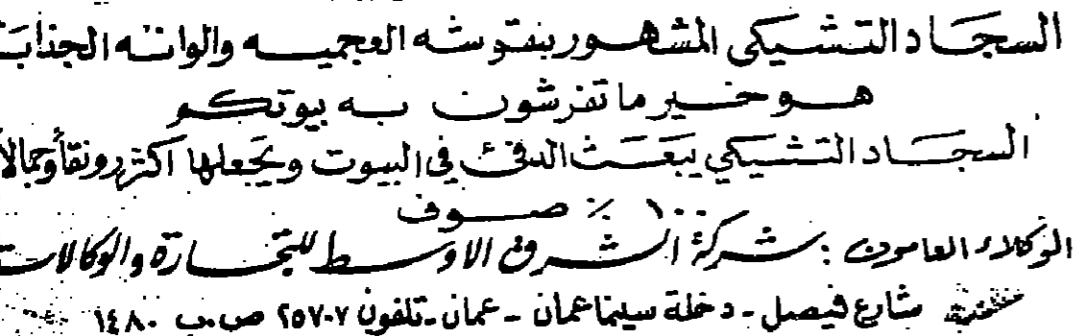 السجاد التشيكي المشهور بنقوشه العجميه والوانه الجذابة
هو خير ما تفرشون به بيوتكم
السجاد التشيكي يبعث الدفئ في البيوت ويجعلها اكثر رونقاً وجمالاً
١٠٠ ٪ صوف
الوكلاء العامون : شركة الشرق الاوسط للتجارة والوكالات
شارع فيصل - دخلة سينما عمان - عمان - تلفون ٢٥٧٠٧ ص.ب ١٤٨٠